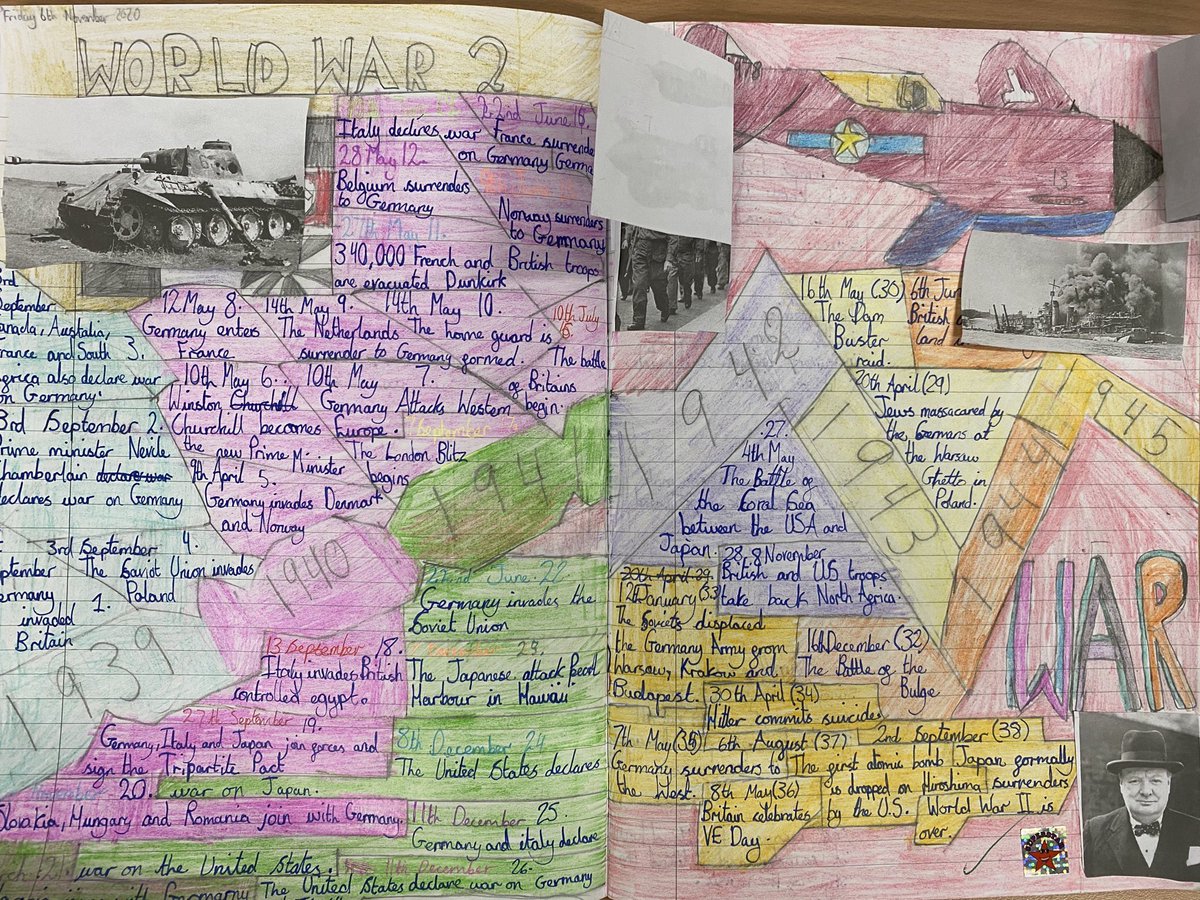 Friday 6th November 2020
WORLD WAR 2
22nd June 15.
Italy declires war
France surrende
on Germany Germa
28 May 12.
Belgium surrenders
to Germany
Norway surrenders
to Germany
27th May 11.
340,000 French and British troops
are evacuated Dunkirk
12 May 8.
Germany enters
France
14th May 9.
The Netherlands
surrender to Germany
14th May 10.
The home guard is
formed.
10th July
16.
The battle
of Britains
begin.
10th May 6.
Winston Churchill
Churchill becomes
the new Prime M.
Minister
10th May 7.
Germany Attacks Western
Europe.
September
The London Blitz
begins
9th April 5.
Germany invades Denmark
and Norway
3rd
September
anada, Australia,
rance and South 3.
frica also declare war
on Germany.
3rd September 2.
Prime minister Nevile
Chamberlain declare war
declares war on Germany
3rd September 4.
The Soviet Union invades
Poland
September
Germany 1.
invaded
Britain
1939
1940
1941
13 September 18.
Italy invades British
controlled egypt.
27th September 19.
Germany, Italy and Japan join forces and
sign the Tripartite Pact
November 20.
Slovakia, Hungary and Romania join with Germany.
22nd June. 22
Germany invades the
Soviet Union
23.
The Japanese attack Pearl
Harbour in Hawaii
8th December 24
The United States declares
war on Japan.
11th December 25.
Germany and italy declare
war on the United States.
11th December 26.
The United States declare war on Germany
arch 21
1942
27.
4th May
The Battle of
the Coral Sea
between the USA and
Japan.
28, 8 November
British and US troops
take back North Africa.
1943
16th May (30)
The Dam
Buster
raid.
20th April (29)
Jews massacared by
the Germans at
the Warsaw
Ghetto in
Poland.
1944
6th Jun
British
land
16 December (32)
The Battle of the
Bulge
1945
20th April 29.
12 January (33
The Soviets displaced
the Germany Army from
Warsaw, Krakow and
Budapest.
30th April (34)
Hitler commits suicide.
7th May (35)
Germany surrenders to
the West.
8th May (36)
Britain celebrates
VE Day.
6th August (37)
The first atomic bomb
is dropped on Hiroshima
by the U.S.
2nd September (38)
Japan formally
surrenders
World War II is
over.
WAR
13